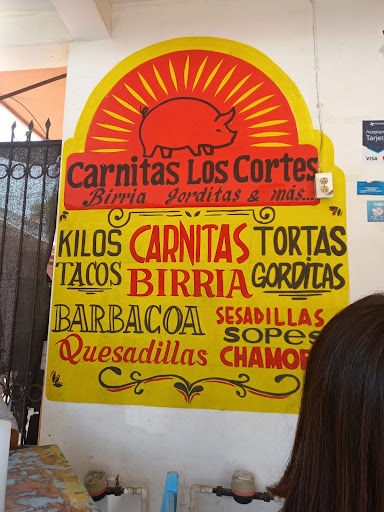 Carnitas Los Cortes
Birria gorditas & más...
KILOS CARNITAS TORTAS
TACOS BIRRIA GORDITAS
BARBACOA SESADILLAS
SOPES
Quesadillas CHAMOR
VISA